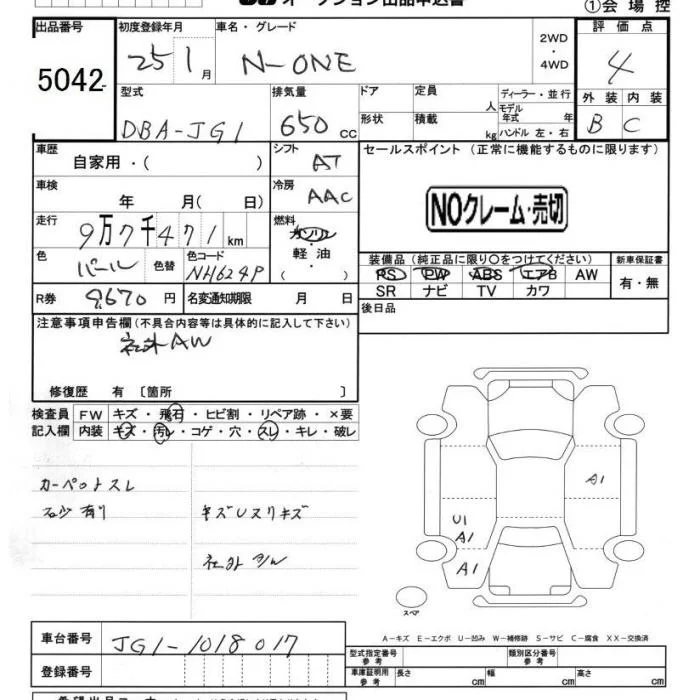 オークション出品申込書
①会場控
出品番号 5042
初度登録年月 25 1月
車名・グレード N-ONE
2WD・4WD
評価点 4
外装 B 内装 C
型式 DBA-JG1
排気量 650 cc
ドア 定員 人 ディーラー・並行
形状 積載 kg モデル年式 年
ハンドル 左・右
車歴 自家用・( )
シフト AT
セールスポイント (正常に機能するものに限ります)
NOクレーム・売切
車検 年 月( 日)
冷房 AAC
走行 9万7千471km
燃料 ガソリン・軽油・( )
色 パール 色替 色コード NH624P
装備品 (純正品に限り〇をつけてください) 新車保証書
PS PW ABS エアB AW 有・無
SR ナビ TV カワ
R券 9,670円 名変通知期限 月 日
後日品
注意事項申告欄 (不具合内容等は具体的に記入して下さい)
社外AW
修復歴 有 〔箇所 〕
検査員記入欄
FW キズ・飛石・ヒビ割・リペア跡・×要
内装 キズ・汚レ・コゲ・穴・スレ・キレ・破レ
カーペットスレ
石少有り キズUスリキズ
A1
U1
A1
A1
スペア
A-キズ E-エクボ U-凹み W-補修跡 S-サビ C-腐食 XX-交換済
車台番号 JG1-1018017
登録番号
型式指定番号 参考 類別区分番号 参考
車庫証明用 参考 長さ cm 幅 cm 高さ cm
希望出品コーナー